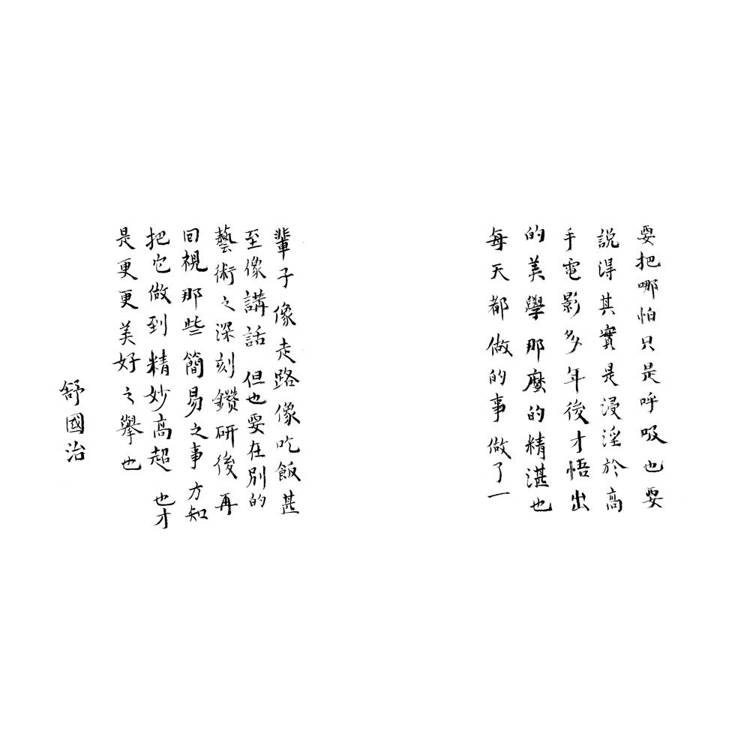 要把哪怕只是呼吸也要
說得其實是浸淫於高
手電影多年後才悟出
的美學那麼的精湛也
每天都做的事做了一
輩子像走路像吃飯甚
至像講話 但也要在別的
藝術之深刻鑽研後再
回視那些簡易之事方知
把它做到精妙高超 也才
是更更美好之舉也
舒國治